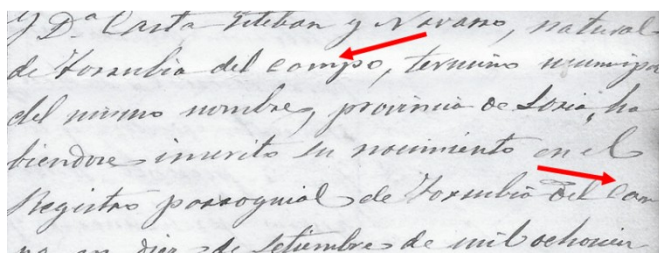 y D.ª Casta Esteban y Navarro, natural
de Torrubia del campo, termino municipa
del mismo nombre, provincia de Soria, ha
biendose inscrito su nacimiento en el
Registro parroquial de Torrubia del Cam
po en diez de Setiembre de mil ochocien